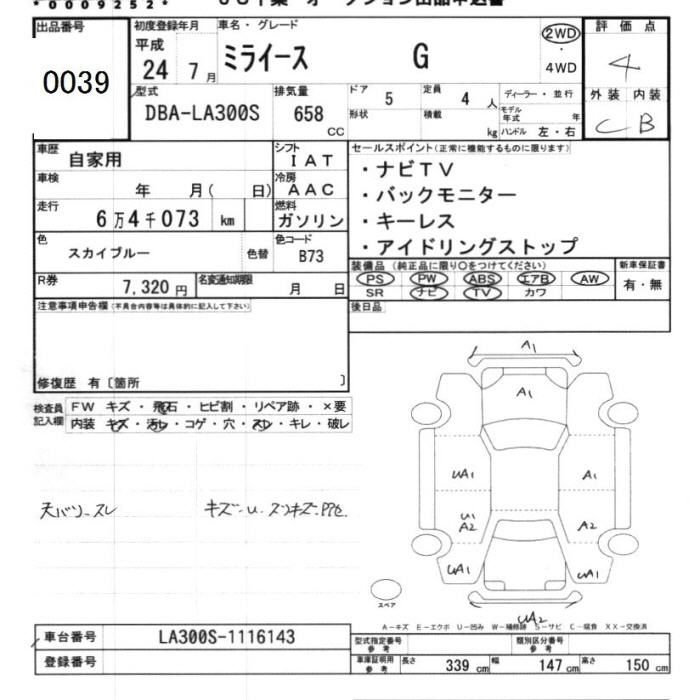 *0009252*
出品番号 初度登録年月 車名・グレード 評価点
0039 平成 24 7月 ミライース G 2WD・4WD 4
外装 内装
C B
型式 排気量 ドア 5 定員 4人 ディーラー・並行
DBA-LA300S 658 CC 形状 積載 kg モデル年式 年
ハンドル 左・右
車歴 自家用 シフト IAT セールスポイント(正常に機能するものに限ります)
車検 年 月( 日) 冷房 AAC ・ナビTV
走行 6万4千073 km 燃料 ガソリン ・バックモニター
・キーレス
色 スカイブルー 色替 色コード B73 ・アイドリングストップ
R券 7,320円 名変通知期限 月 日 装備品(純正品に限り○をつけてください) 新車保証書
PS PW ABS エアB AW 有・無
SR ナビ TV カワ
注意事項申告欄(不具合内容等は具体的に記入して下さい) 後日品
修復歴 有〔箇所 〕
検査員記入欄 FW キズ・飛石・ヒビ割・リペア跡・×要
内装 キズ・汚レ・コゲ・穴・スレ・キレ・破レ
A1
A1
UA1 A1
U1 A2 A2
UA1 UA1
UA2
スペア
A-キズ E-エクボ U-凹み W-補修跡 S-サビ C-腐食 XX-交換済
車台番号 LA300S-1116143
登録番号
型式指定番号 参考 類別区分番号 参考
車庫証明用 参考 長さ 339 cm 幅 147 cm 高さ 150 cm